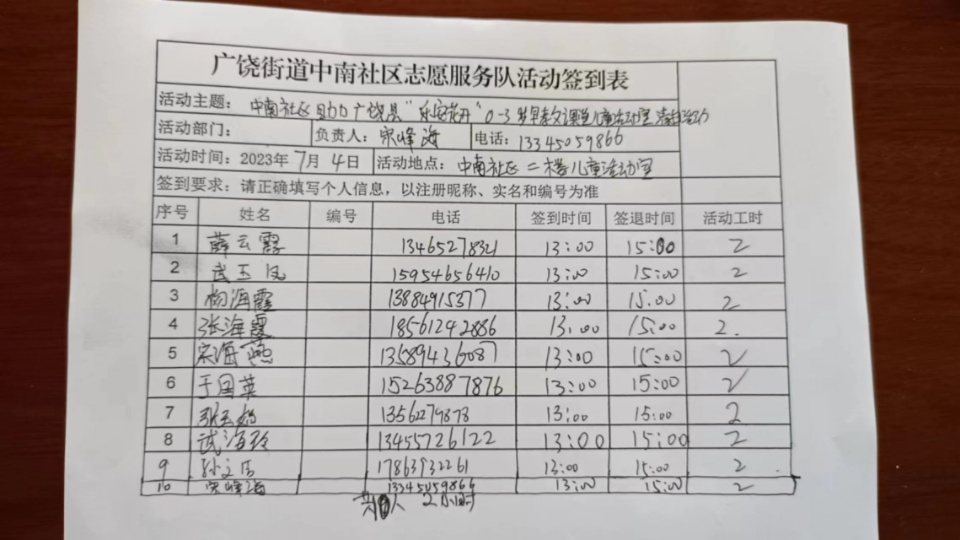 广饶街道中南社区志愿服务队活动签到表
活动主题：中南社区 广饶县“乐安花开”0-3岁早教课堂儿童活动室
活动部门： 负责人：宋峰海 电话：13345059866
活动时间：2023年7月4日 活动地点：中南社区二楼儿童活动室
签到要求：请正确填写个人信息，以注册昵称、实名和编号为准
序号 姓名 编号 电话 签到时间 签退时间 活动工时
1 薛云霞 13465278321 13:00 15:00 2
2 武玉凤 15954656410 13:00 15:00 2
3 杨海霞 13884915377 13:00 15:00 2
4 张海霞 18561242886 13:00 15:00 2.
5 宋海燕 13589436087 13:00 15:00 2
6 于国英 15263887876 13:00 15:00 2
7 张玉 13562279873 13:00 15:00 2
8 武海玲 13455726122 13:00 15:00 2
9 孙文 17863932261 13:00 15:00 2
10 宋峰海 13345059866 13:00 15:00 2
共10人 2小时